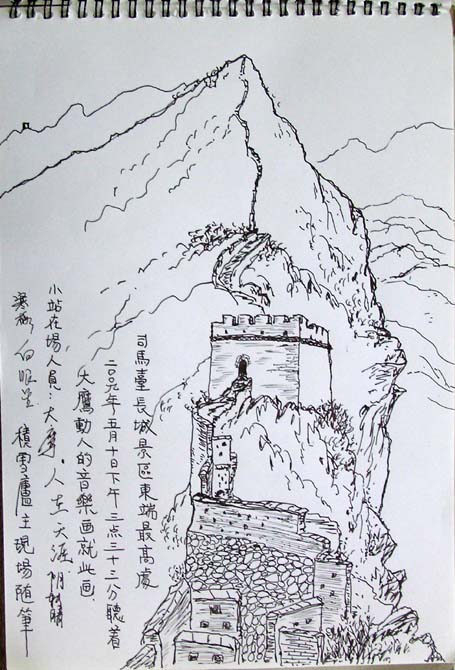 司馬臺長城景區東端最高處
二〇〇九年五月十日下午三点三十三分聽着
大鷹動人的音樂画就此画.
小站在場人員:大摩,人在天涯,阴转晴
寒極,白眼望 積雪廬主現場随筆